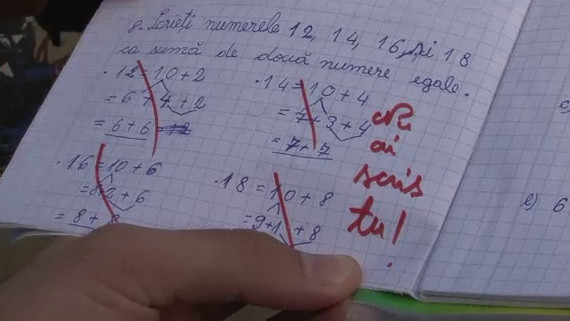 8. Scrieți numerele 12, 14, 16, și 18
ca sumă de două numere egale.
· 12 = 10 + 2
= 6 + 4 + 2
= 6 + 6 = 12
· 14 = 10 + 4
= 7 + 3 + 4
= 7 + 7
· 16 = 10 + 6
= 8 + 2 + 6
= 8 + 8
· 18 = 10 + 8
= 9 + 1 + 8
Nu
ai
scris
tu!
e) 6